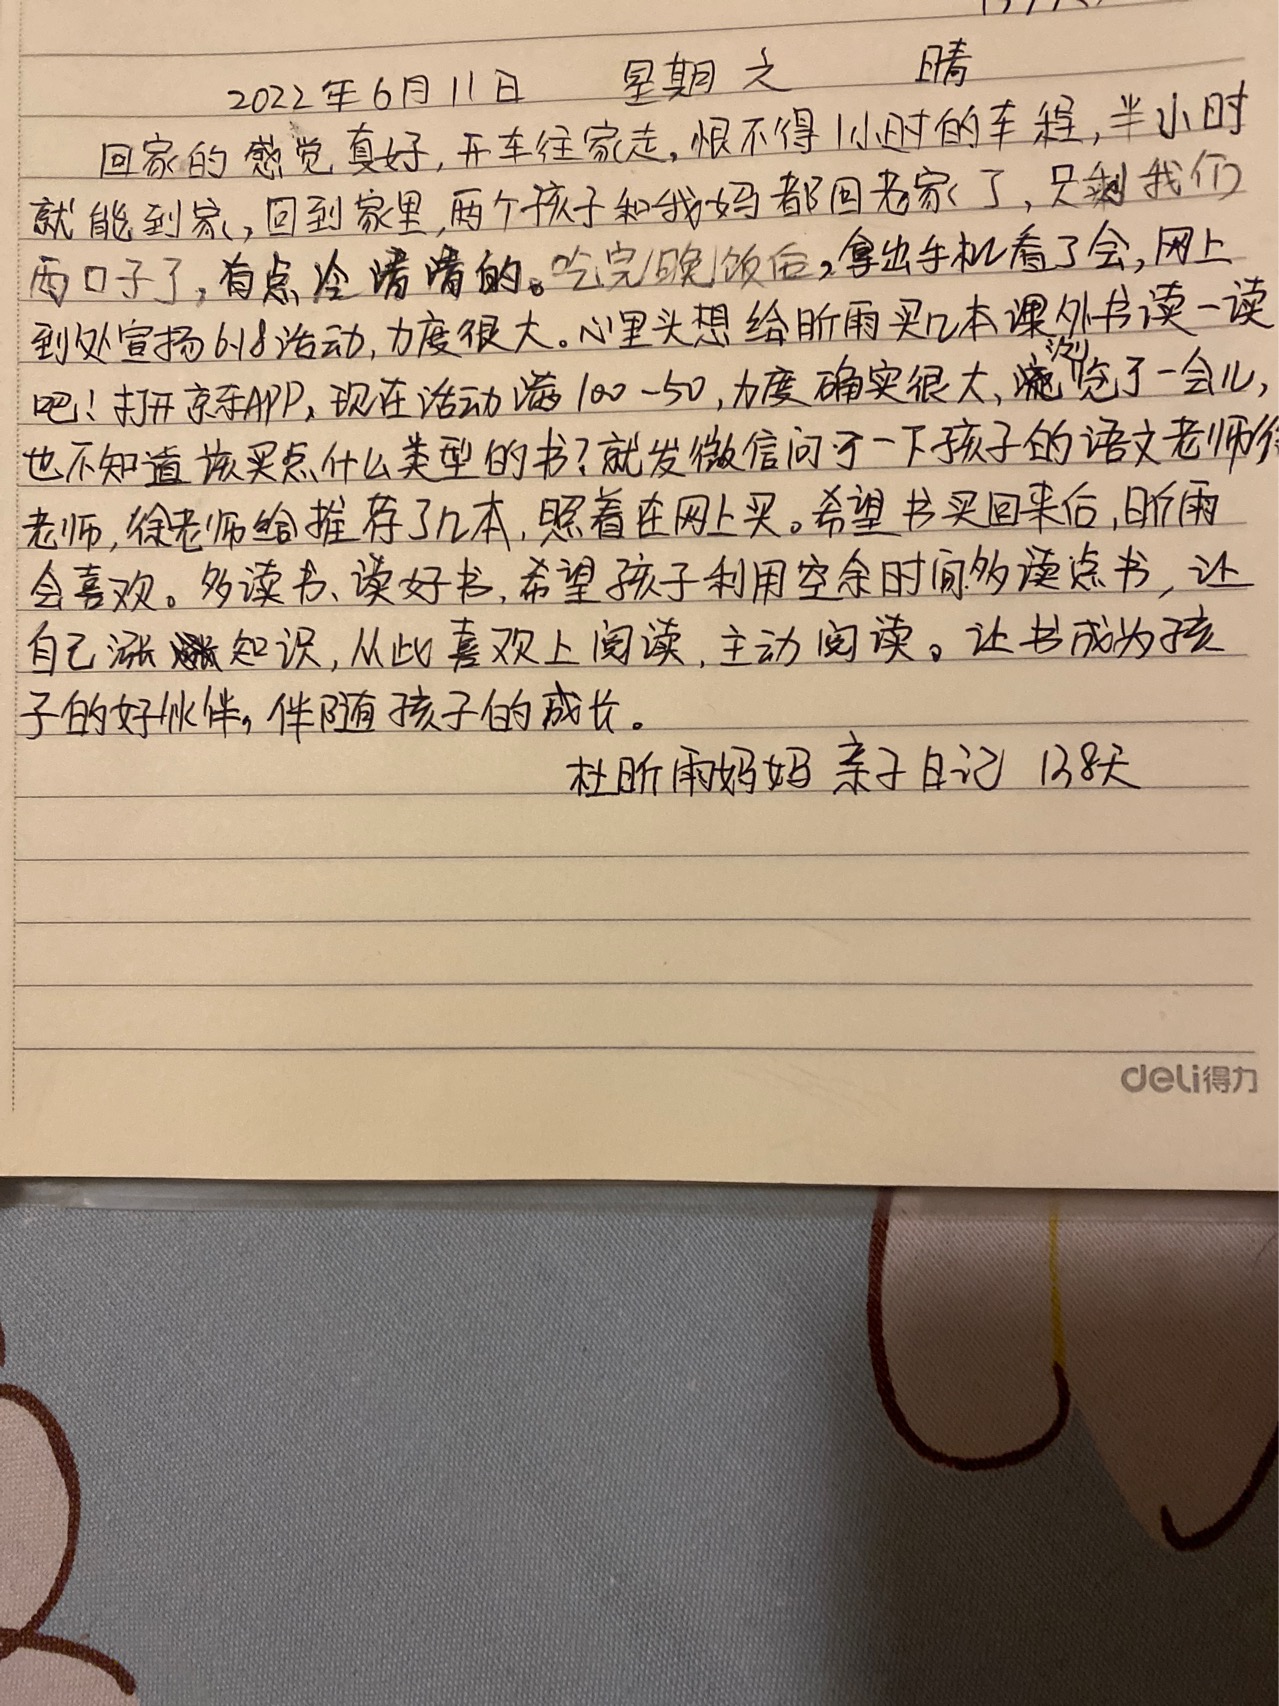 2022年6月11日 星期六 晴
回家的感觉真好,开车往家走,恨不得1小时的车程,半小时
就能到家,回到家里,两个孩子和我妈都回老家了,只剩我们
两口子了,有点冷清清的。吃完晚饭后,拿出手机看了会,网上
到处宣扬618活动,力度很大。心里头想给昕雨买几本课外书读一读
吧!打开京东APP,现在活动满100-50,力度确实很大,浏览了一会儿,
也不知道该买点什么类型的书?就发微信问了一下孩子的语文老师徐
老师,徐老师给推荐了几本,照着在网上买。希望书买回来后,昕雨
会喜欢。多读书、读好书,希望孩子利用空余时间多读点书,让
自己涨知识,从此喜欢上阅读,主动阅读。让书成为孩
子的好伙伴,伴随孩子的成长。
杜昕雨妈妈 亲子日记 138天
deli得力